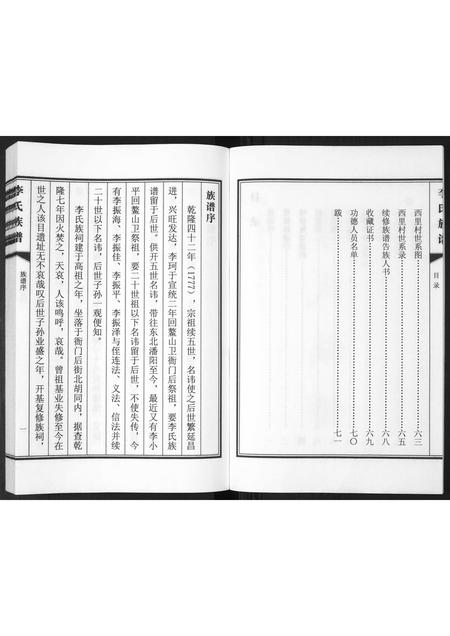 李氏族谱
目录
西里村世系图……六三
西里村世系录……六五
续修族谱告族人书……六八
收藏证书……六九
功德人员名单……七〇
跋……七一
族谱序
乾隆四十二年(1777),宗祖续五世,名讳使之后世繁延昌
进,兴旺发达,李珂于宣统二年回鳌山卫衙门后祭祖,要李氏族
谱留于后世。供开五世名讳,带往东北潘阳至今,最近又有李小
平回鳌山卫祭祖,要二十世祖以下名讳留于后世,不使失传,今
有李振海、李振佳、李振平、李振泽与侄连法、义法、信法并续
二十世以下名讳,后世子孙一观便知。
李氏族祠建于高祖之年,坐落于衙门后街北胡同内,据查乾
隆七年因火焚之,天哀,人该鸣呼,哀哉。曾祖基业失修至今在
世之人该目遗址无不哀哉叹后世子孙业盛之年,开基复修族祠,
李氏族谱
族谱序
一